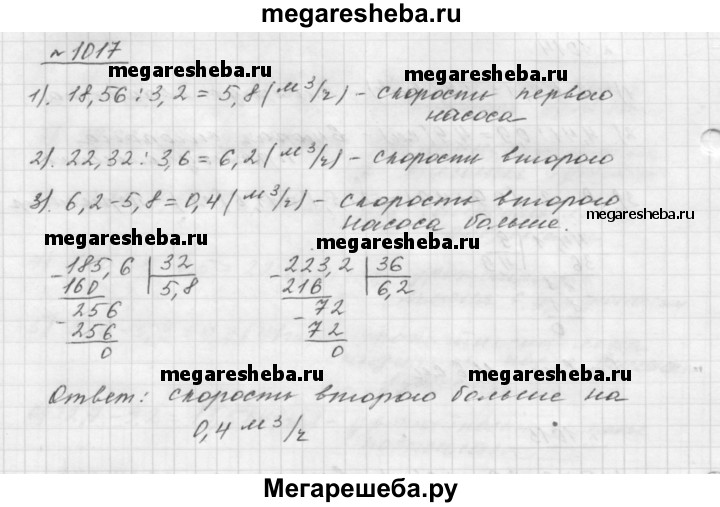 megaresheba.ru
№ 1017
megaresheba.ru
megaresheba.ru
1). 18,56 : 3,2 = 5,8 (м³/ч) - скорость первого
насоса
2). 22,32 : 3,6 = 6,2 (м³/ч) - скорость второго
3). 6,2 - 5,8 = 0,4 (м³/ч) - скорость второго
насоса больше.
megaresheba.ru
megaresheba.ru
megaresheba.ru
- 185,6 | 32
160 | 5,8
- 256
256
0
- 223,2 | 36
216 | 6,2
- 72
72
0
megaresheba.ru
megaresheba.ru
Ответ: скорость второго больше на
0,4 м³/ч
Мегарешеба.ру